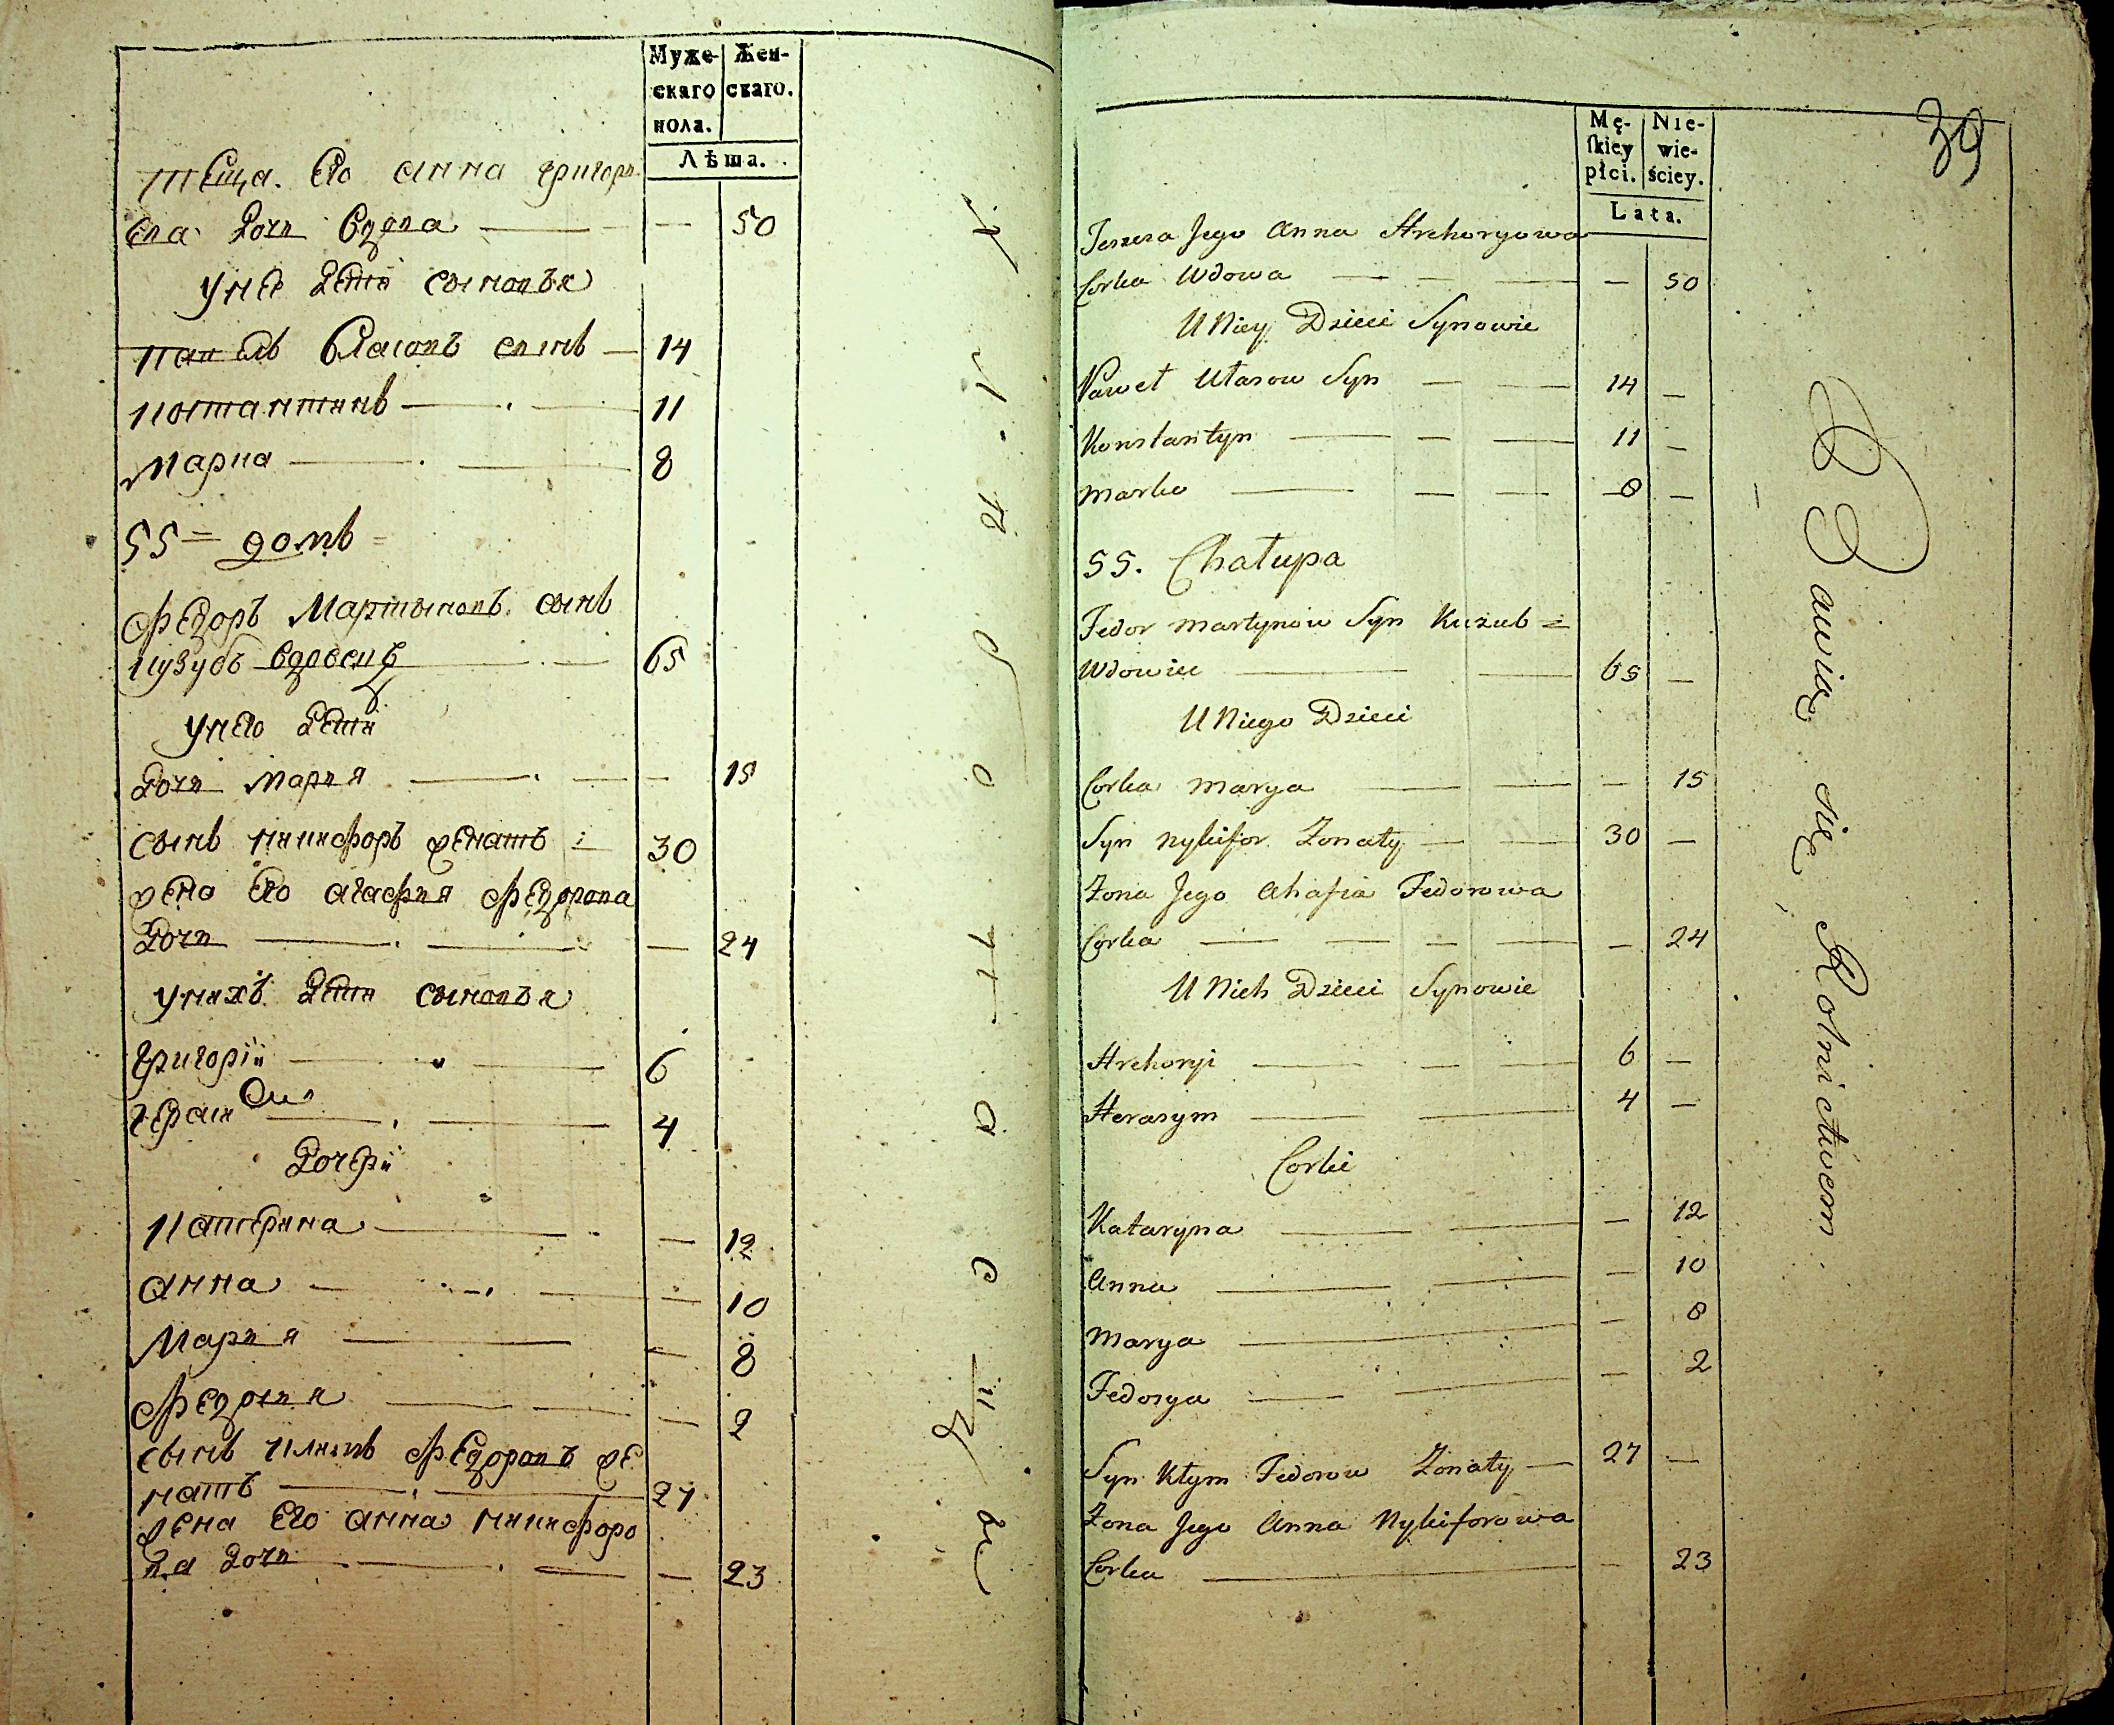 Муже-
скаго
пола.
Жен-
скаго.
Лѣта.
теща его анна григорь
ева дочь вдова 50
у нее дети сыновья
павелъ власовъ сынъ 14
костантинъ 11
марка 8
55 = домъ =
федоръ Мартыновъ сынъ
кузубъ вдовецъ 65
у него дети
дочь мария 15
сынъ никифоръ женатъ 30
жена его агафия федорова
дочь 24
у нихъ дети сыновья
григорій 6
герасим 4
дочери
катерина 12
анна 10
Мария 8
федосия 2
сынъ климъ федоровъ же
натъ 27
жена его анна никифоро
ва дочь 23
39
Mę-
skiey
płci.
Nie-
wie-
ściey.
Lata.
Teszcza Jego Anna Hrehoryowa
Corka Wdowa 50
U Niey Dzieci Synowie
Paweł Ułasow Syn 14
Konstantyn 11
Marko 8
55. Chałupa
Fedor Martynow Syn Kuzub =
Wdowiec 65
U Niego Dzieci
Corka Marya 15
Syn Nykifor Żonaty 30
Żona Jego Ahafia Fedorowa
Corka 24
U Nich Dzieci Synowie
Hrehoryi 6
Herasym 4
Corki
Kataryna 12
Anna 10
Marya 8
Fedosya 2
Syn Kłym Fedorow Żonaty 27
Żona Jego Anna Nykiforowa
Corka 23
Bawią się Rolnictwem